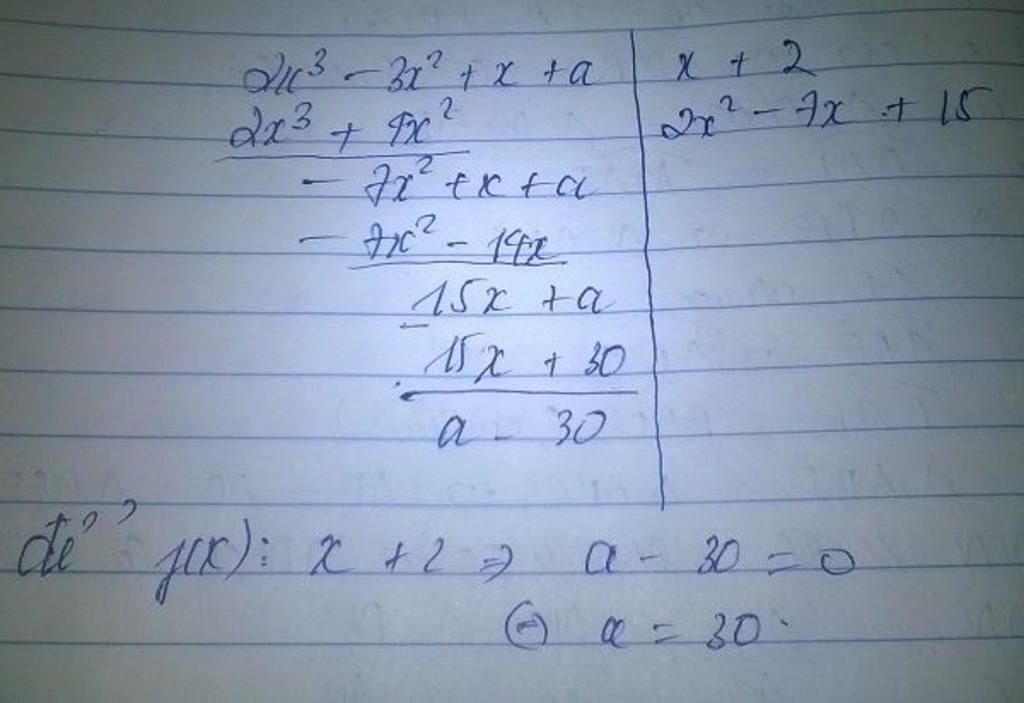 2x³ - 3x² + x + a | x + 2
2x³ + 4x² | 2x² - 7x + 15
- 7x² + x + a
- 7x² - 14x
15x + a
- 15x + 30
a - 30
để f(x): x + 2 => a - 30 = 0
⇔ a = 30.